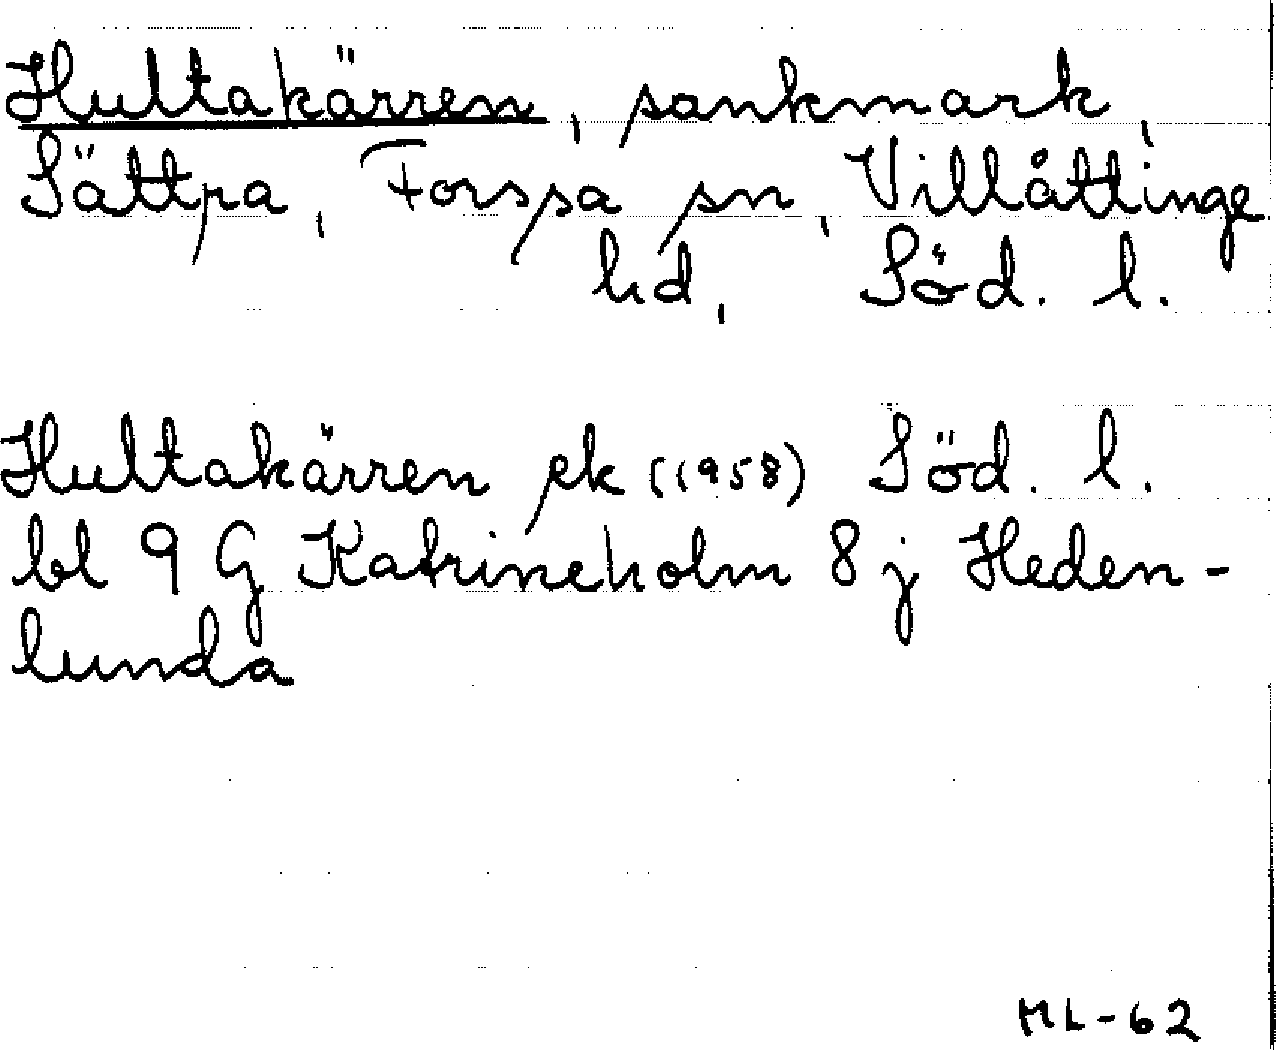 Hultakärren, sankmark,
Sättra, Forssa sn, Villåttinge
hd, Söd. l.
Hultakärren ek (1958) Söd. l.
bl 9 G Katrineholm 8 j Heden-
lunda
ML-62